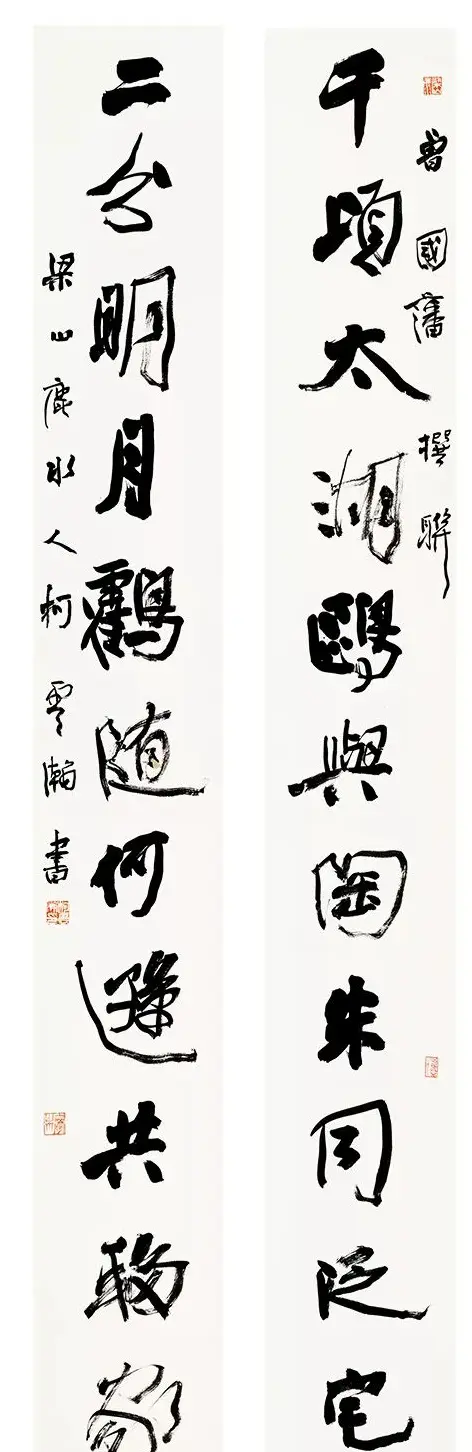 曾國藩撰聯
千頃太湖鷗與陶朱同泛宅
二分明月鸖随何遜共移家
梁山鹿水人柯雲瀚書